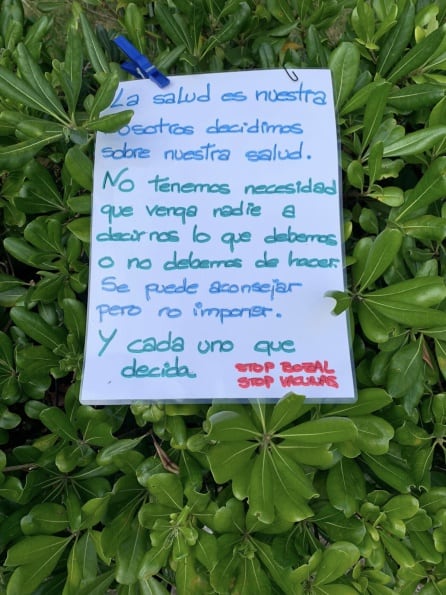 La salud es nuestra
osotros decidimos
sobre nuestra salud.
No tenemos necesidad
que venga nadie a
decirnos lo que debemos
o no debemos de hacer.
Se puede aconsejar
pero no imponer.
Y cada uno que
decida
STOP BOZAL
STOP VACUNAS